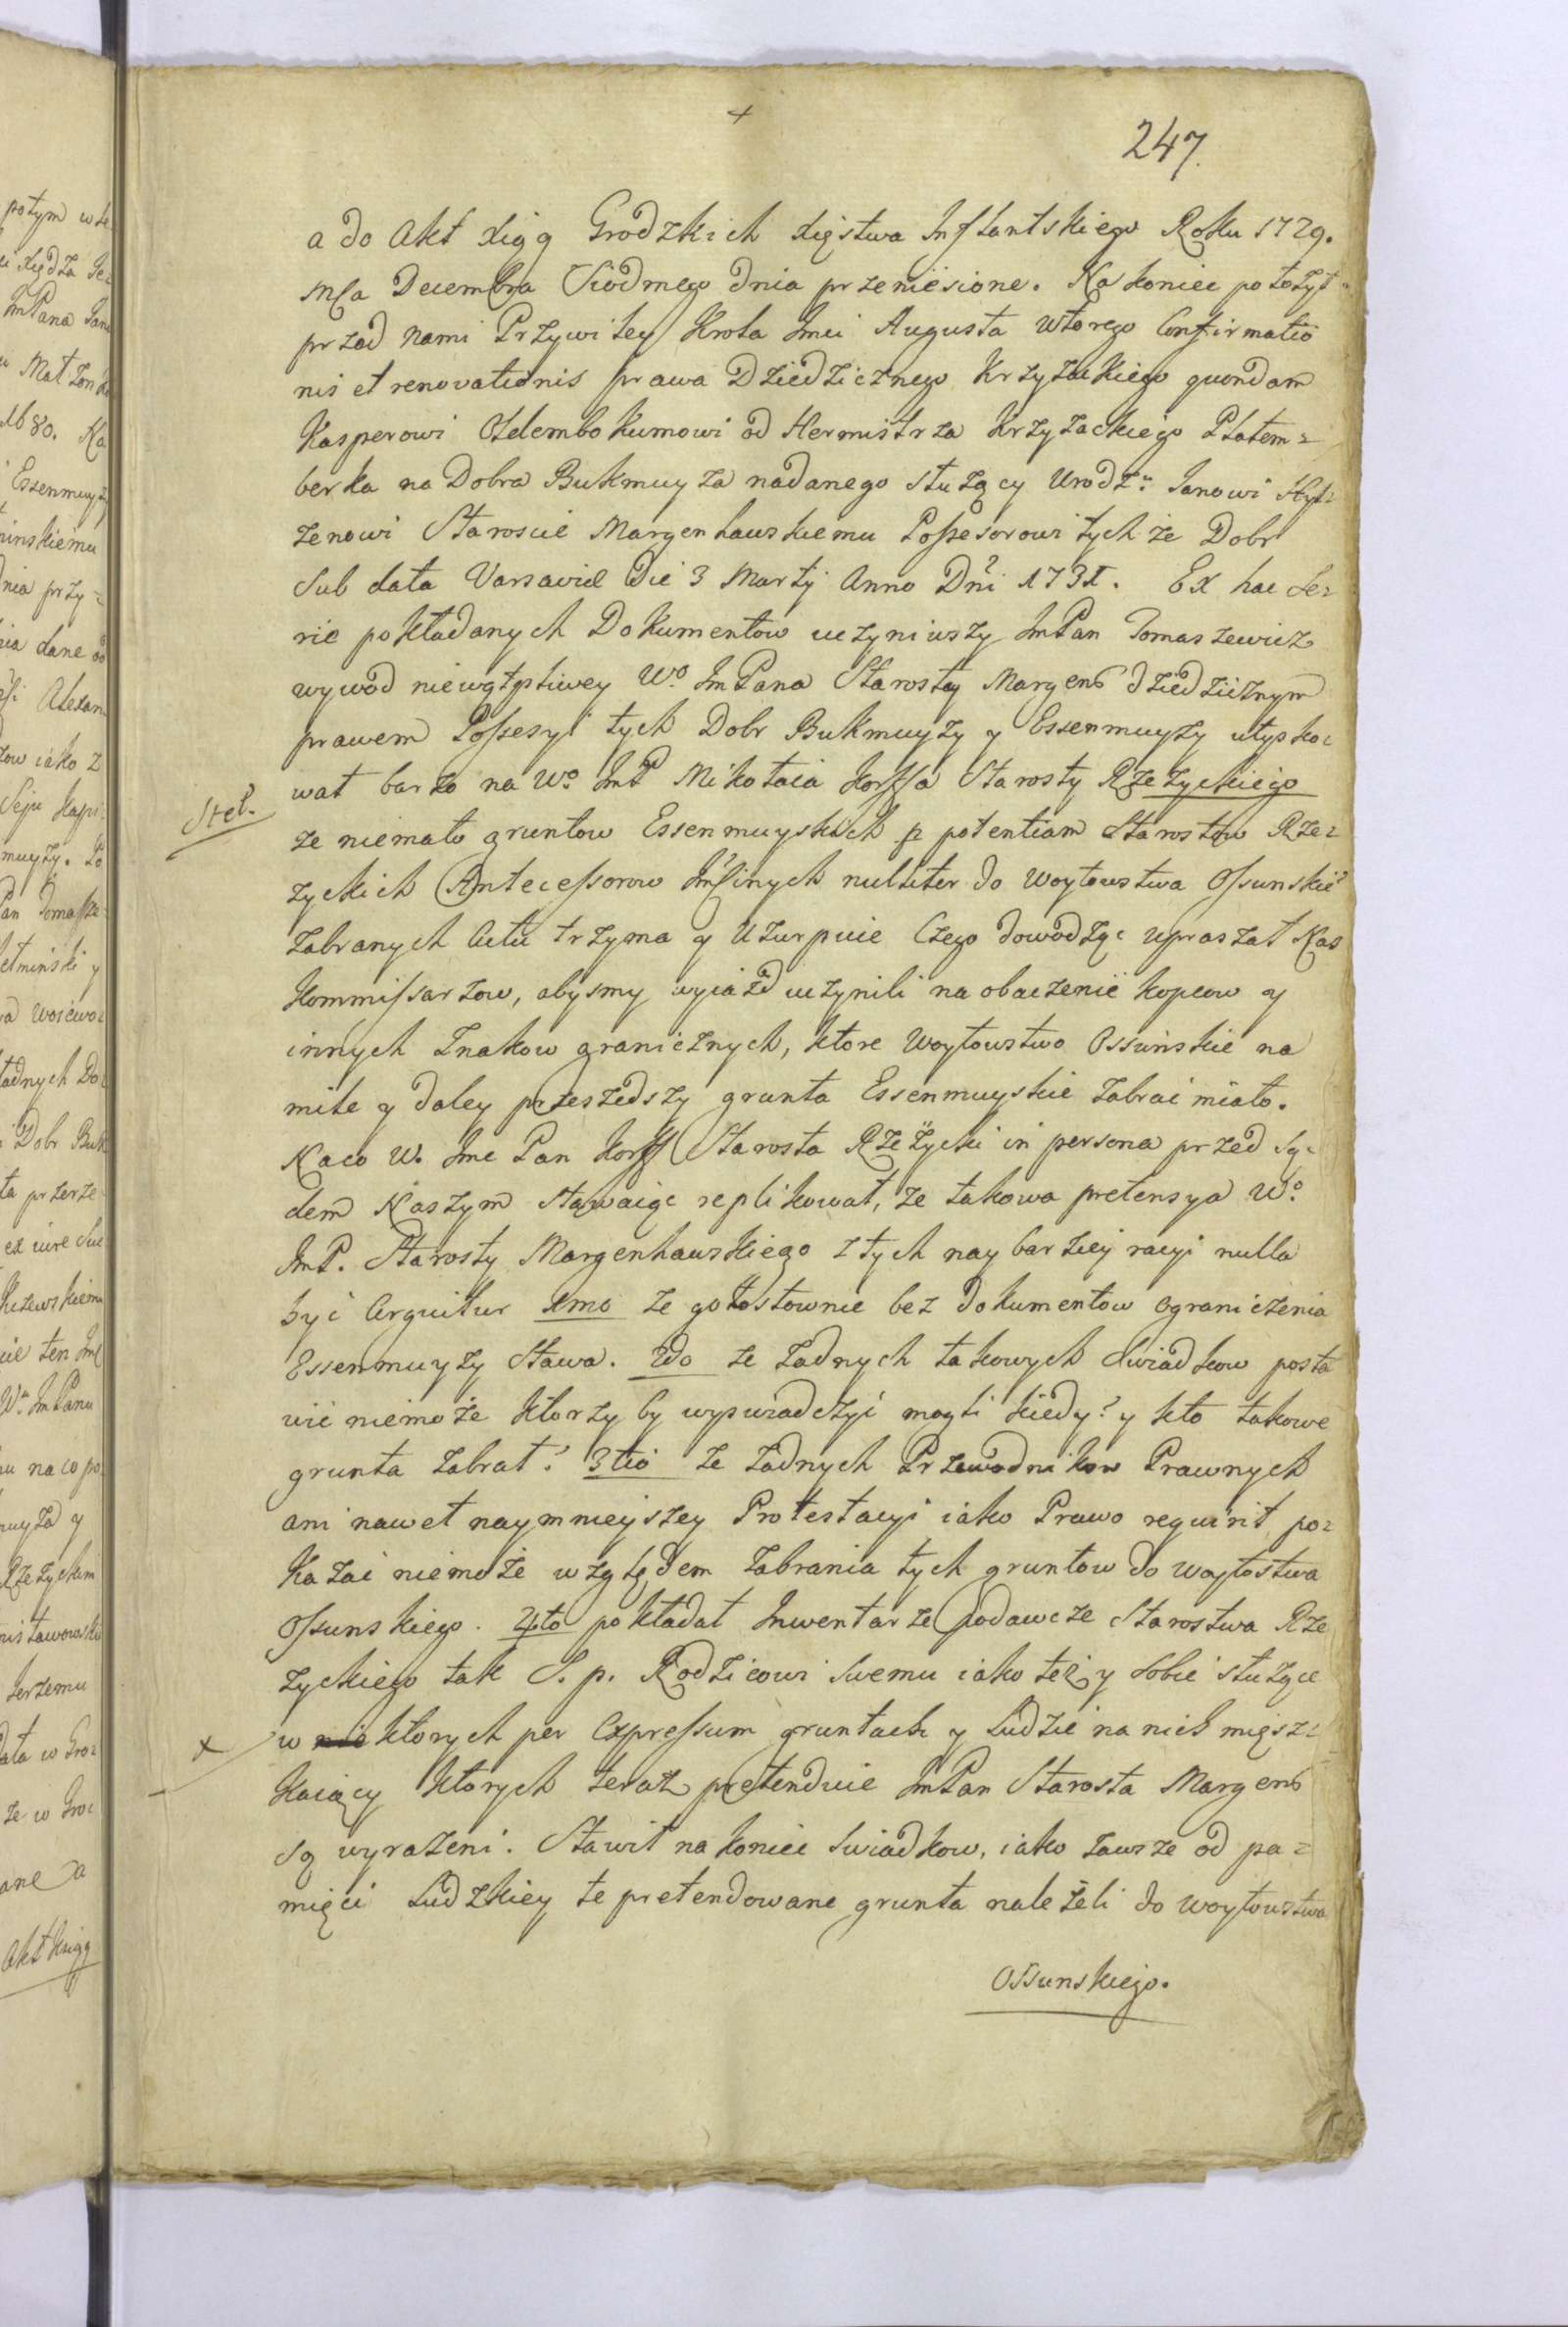 247.
a do Akt Xiąg Grodzkich Xięstwa Inflantskiego Roku 1729.
Msca Decembra Siodmego dnia przeniesione. Na koniec położył
przed nami Przywiley Krola Jmci Augusta wtorego Confirmatio
nis et renovationis prawa Dziedzicznego Krzyżackiego quondam
Kasperowi Ozelembokumowi od Hermistrza Krzyżackiego Platem=
berka na Dobra Bukmuyza nadanego służący Urodz: Janowi Hyl=
zenowi Staroscie Margenhauskiemu Possesorowi tychże Dobr
Sub data Varsaviae Die 3 Martij Anno Dni 1731. Ex hac Se=
rie pokładanych Dokumentow uczyniwszy JmPan Tomaszewicz
wywod niewątpliwey Wo JmPana Starosty Margens dziedzicznym
prawem Possesyi tych Dobr Bukmuyzy y Essenmuyzy utysko=
wał barzo na Wo JmP Mikołaia Korffa Starosty Rzezyckiego
ze niemało gruntow Essenmuyskich p potentiam Starostow Rze=
zyckich Antecessorow Jmscinych nulliter do Woytowstwa Ossunskie
zabranych Actu trzyma y Uzurpuie Czego dowodząc upraszał Nas
Kommissarzow, abysmy wyiazd uczynili na obaczenie kopcow y
innych Znakow granicznych, ktore Woytowstwo Ossunskie na
mile y daley przeszedszy grunta Essenmuyskie zabrac miało.
Naco W. Jmc Pan Korff Starosta Rzeżycki in persona przed Są=
dem Naszym stawaiąc replikował, ze takowa pretensya Wo
JmP. Starosty Margenhauskiego z tych naybarziey racyi nulla
być Arguitur 1mo ze gołosłownie bez dokumentow ograniczenia
Essenmuyzy stawa. 2do ze zadnych takowych swiadkow posta
wic niemoże ktorzy by wyswiadczyć mogli kiedy? y kto takowe
grunta zabrał? 3tio ze żadnych Przewodnikow Prawnych
ani nawet naymnieyszey Protestacyi iako Prawo requirit po=
kazac niemoże względem zabrania tych gruntow do woytostwa
Ossunskiego. 4to pokładał Inwentarze podawcze Starostwa Rze
zyckiego tak S. p. Rodzicowi Swemu iako też y sobie służące
w ktorych per Expressum gruntach y Ludzie na nich miesz=
kaiący ktorych teraz pretenduie JmPan Starosta Margens
są wyrażeni. Stawił na koniec Swiadkow, iako zawsze od pa=
mięci Ludzkiey te pretendowane grunta należeli do woytowstwa
Ossunskiego.